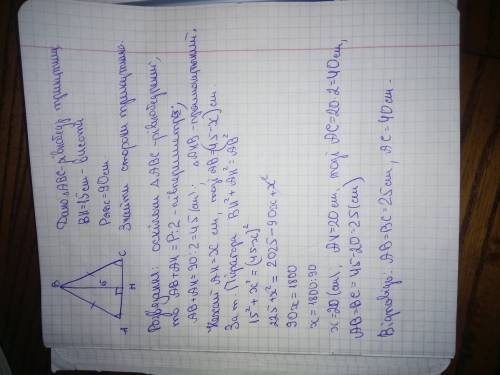 Дано: △ABC - рівнобедр. трикутник
BH = 15 см - висота
P△ABC = 90 см
Знайти сторони трикутника.
B
15
A H C
Розв'язання: оскільки △ABC - рівнобедрений,
то AB + AH = P:2 - півпериметр,
AB + AH = 90 : 2 = 45 (см). △AHB - прямокутний.
Нехай AH = x см, тоді AB = (45 - x) см.
За т. Піфагора BH² + AH² = AB²
15² + x² = (45-x)²
225 + x² = 2025 - 90x + x²
90x = 1800
x = 1800:90
x = 20 (см), AH = 20 см, тоді AC = 20·2 = 40 см,
AB = BC = 45 - 20 = 25 (см)
Відповідь: AB = BC = 25 см, AC = 40 см.